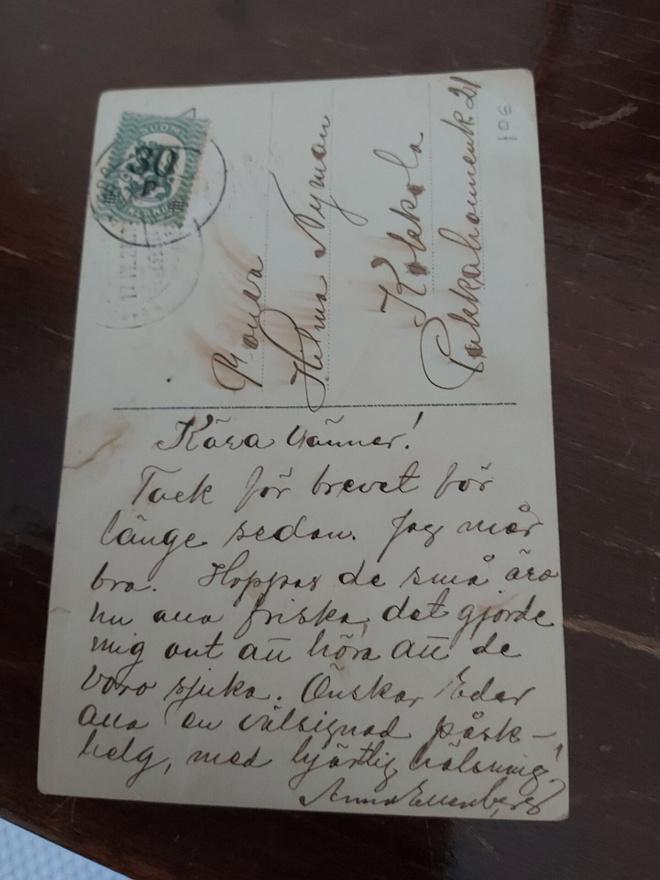 SUOMI
30
P
FINLAND
17.IV.2
Rouva
Helma Nyman
Kokkola
Pakkahuoneenk. 21
106
Kära vänner!
Tack för brevet för
länge sedan. Jag mår
bra. Hoppas de små äro
nu alla friska, det gjorde
mig ont att höra att de
voro sjuka. Önskar Eder
alla en välsignad påsk-
helg, med hjärtlig hälsning!
Anna Ellenberg